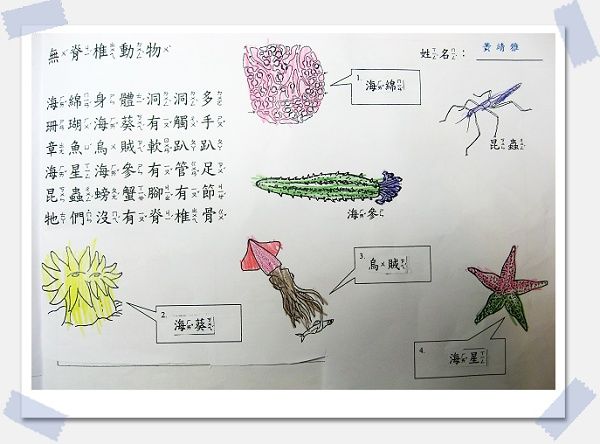 無脊椎動物
姓名：黃靖雅
海綿身體洞洞多
珊瑚海葵有觸手
章魚烏賊軟趴趴
海星海參有管足
昆蟲螃蟹腳有節
牠們沒有脊椎骨
1. 海綿
昆蟲
海參
2. 海葵
3. 烏賊
4. 海星